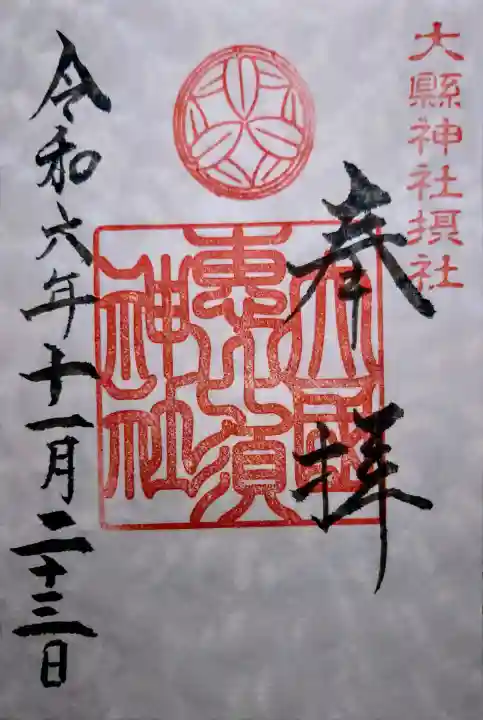 大縣神社摂社
奉拝
大國
恵比須
神社
令和六年十一月二十三日